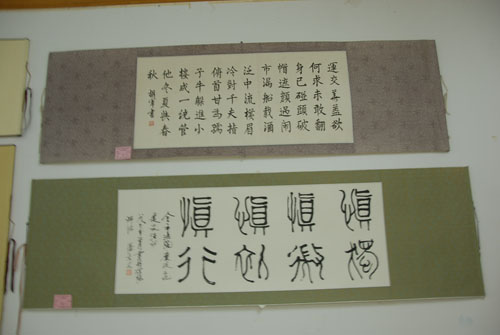 運交華蓋欲
何求未敢翻
身已碰頭破
帽遮顏過鬧
市漏船載酒
泛中流橫眉
冷對千夫指
俯首甘為孺
子牛躲進小
樓成一統管
他冬夏與春
秋
慎獨
慎微
慎初
慎行